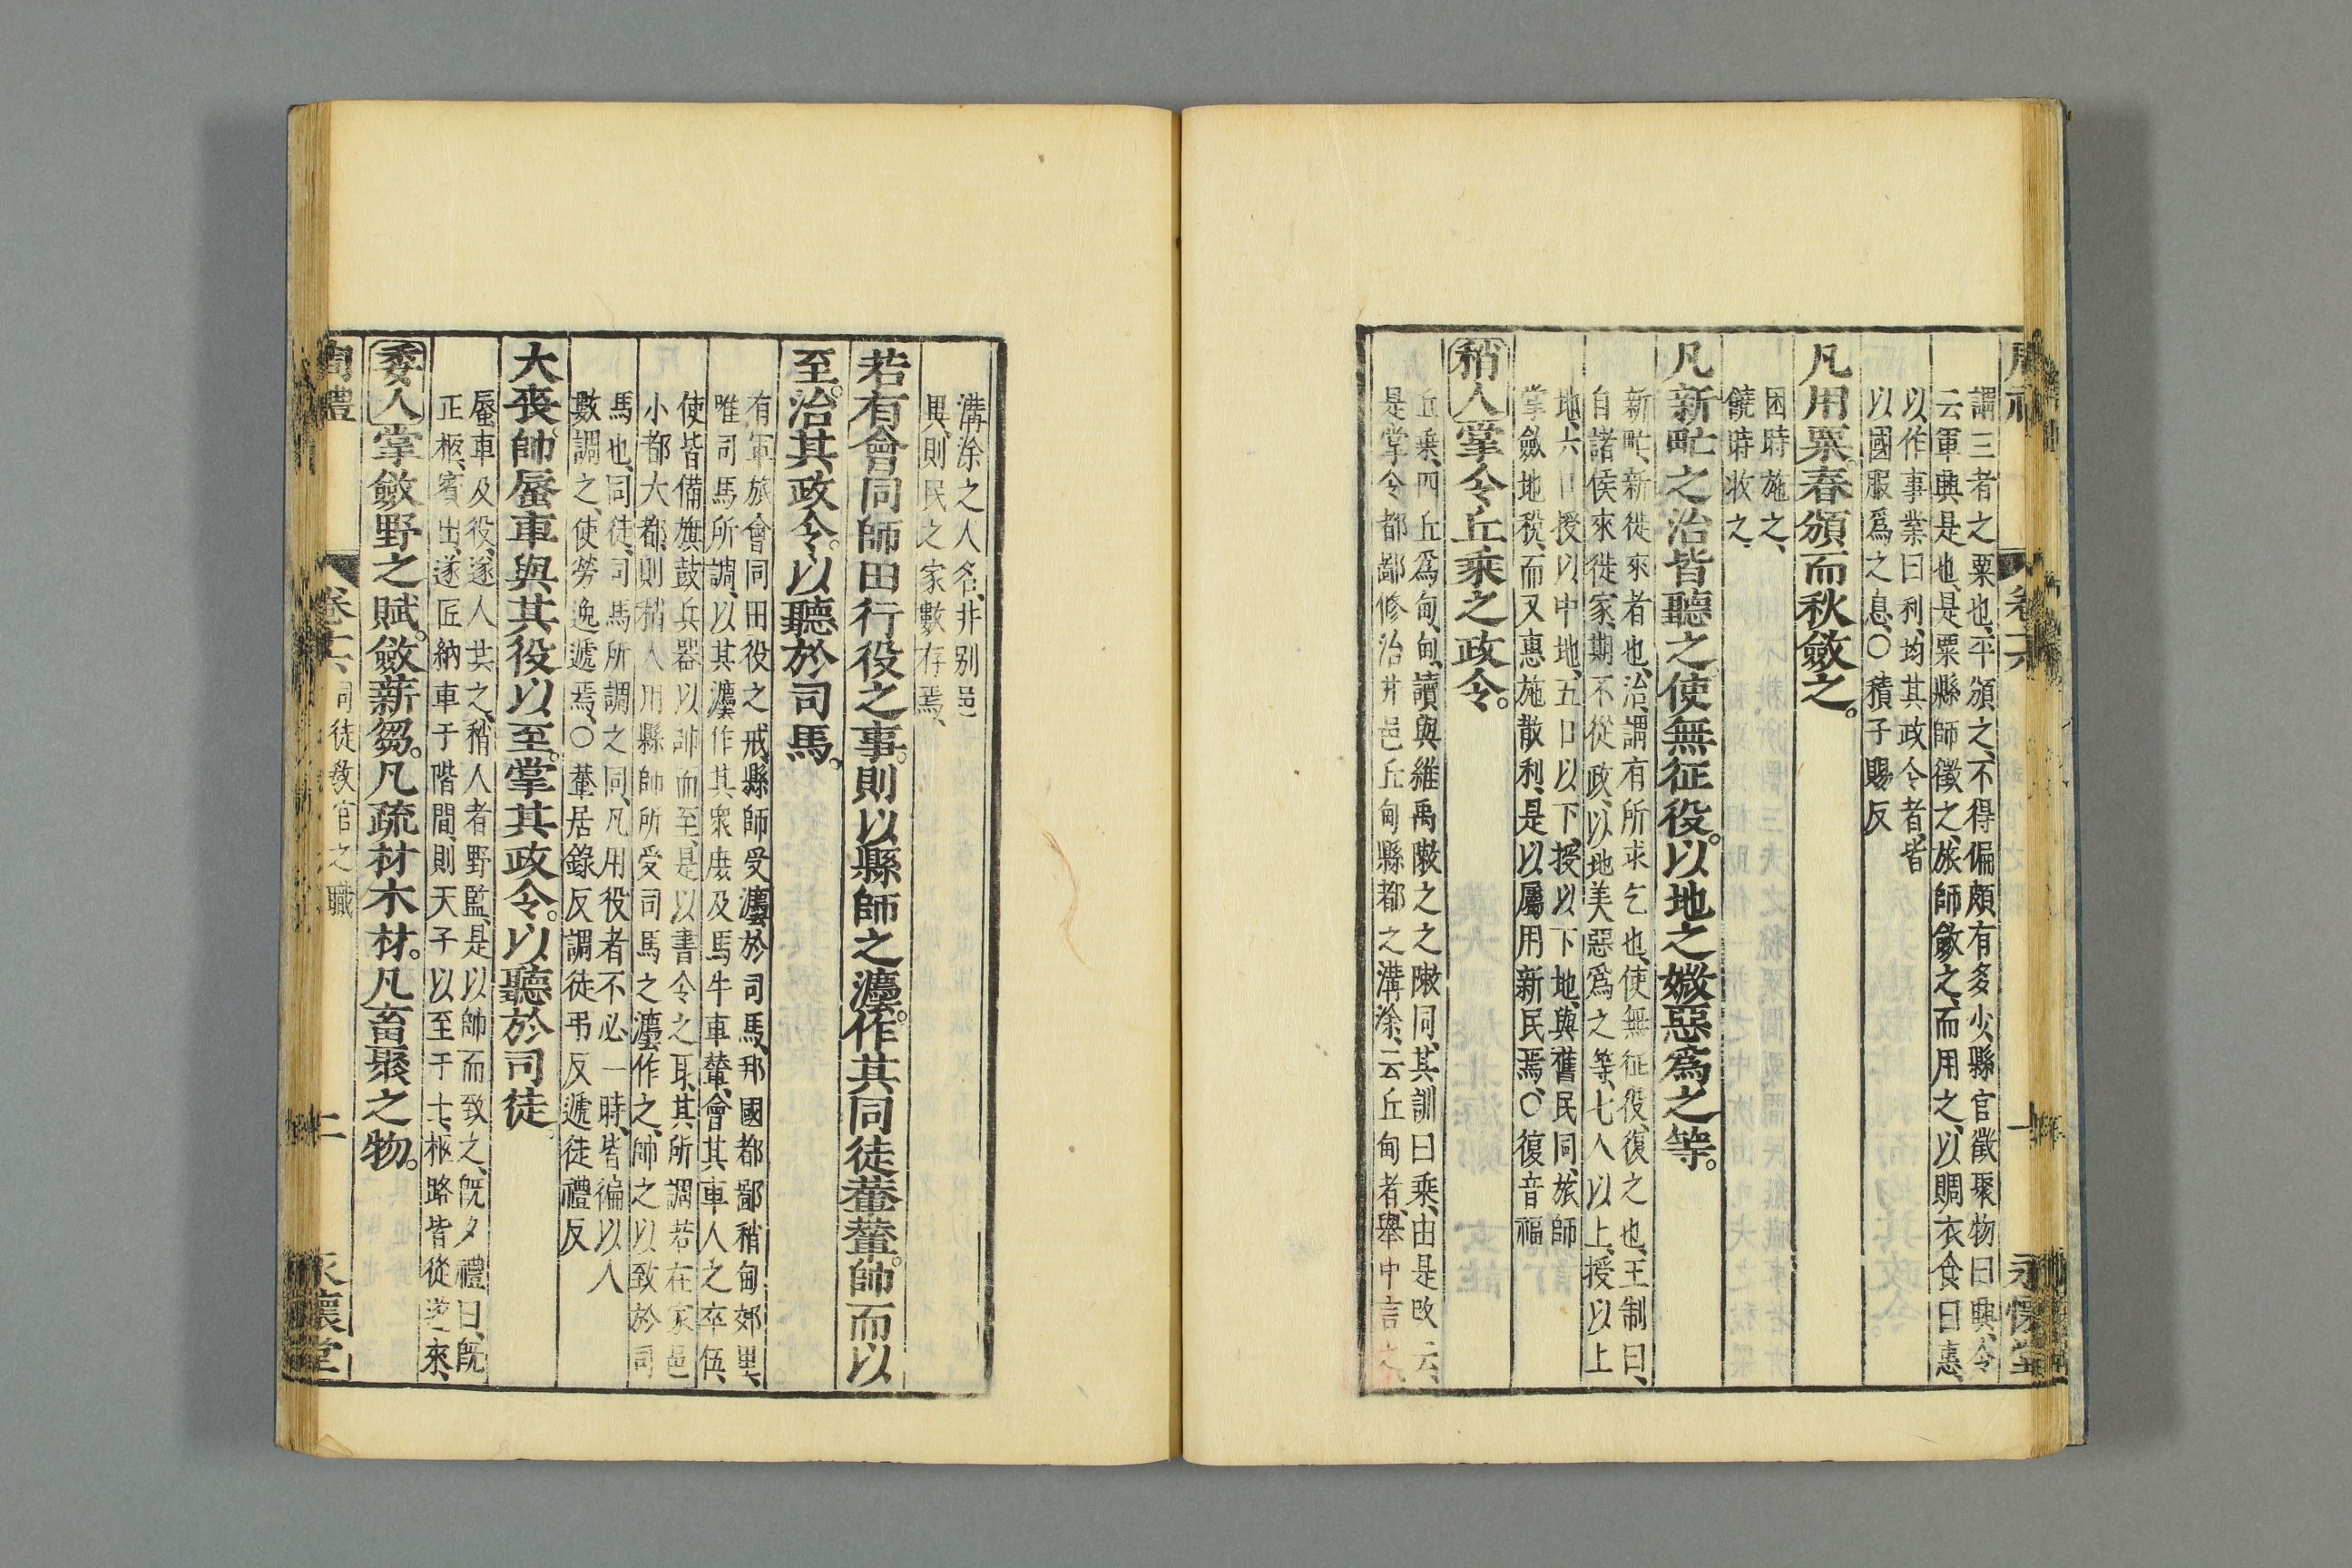 周禮 卷十六 一 永懷堂
謂三者之粟也、平頒之、不得偏頗有多少、縣官徵聚物曰興、今
云軍興是也、是粟縣師徵之、旅師斂之、而用之、以賙衣食曰惠、
以作事業曰利、均其政令者、皆
以國服爲之息、○積子賜反
凡用粟春頒而秋斂之。
困時施之、
饒時收之、
凡新甿之治皆聽之。使無征役。以地之媺惡爲之等。
新甿、新徙來者也、治、謂有所求乞也、使無征役、復之也、王制曰、
自諸侯來徙家、期不從政、以地美惡爲之等、七人以上、授以上
地、六口授以中地、五口以下、授以下地、與舊民同、旅師
掌斂地稅、而又惠施散利、是以屬用新民焉、○復音福
稍人掌令丘乘之政令。
丘乘、四丘爲甸、甸、讀與維禹敶之之敶同、其訓曰乘、由是改云、
是掌令都鄙修治井邑丘甸縣都之溝涂、云丘甸者、舉中言之、
溝涂之人名、井别邑
異、則民之家數存焉、
若有會同師田行役之事。則以縣師之灋。作其同徒輂輦。帥而以
至。治其政令。以聽於司馬。
有軍旅會同田役之戒、縣師受灋於司馬、邦國都鄙稍甸郊里、
唯司馬所調、以其灋作其衆庶及馬牛車輦、會其車人之卒伍、
使皆備旗鼓兵器、以帥而至、是以書令之耳、其所調若在家邑
小都大都、則稍人用縣師所受司馬之灋作之、帥之以致於司
馬也、同徒、司馬所調之同、凡用役者不必一時、皆徧以人
數調之、使勞逸遞焉、○輂居錄反調徒弔反遞徒禮反
大喪帥蜃車與其役以至。掌其政令。以聽於司徒
蜃車及役、遂人共之、稍人者野監、是以帥而致之、既夕禮曰、既
正柩、賓出、遂匠納車于階間、則天子以至于士、柩路皆從遂來、
委人掌斂野之賦。斂薪芻。凡疏材木材。凡畜聚之物。
周禮 卷十六、司徒教官之職 二 永懷堂